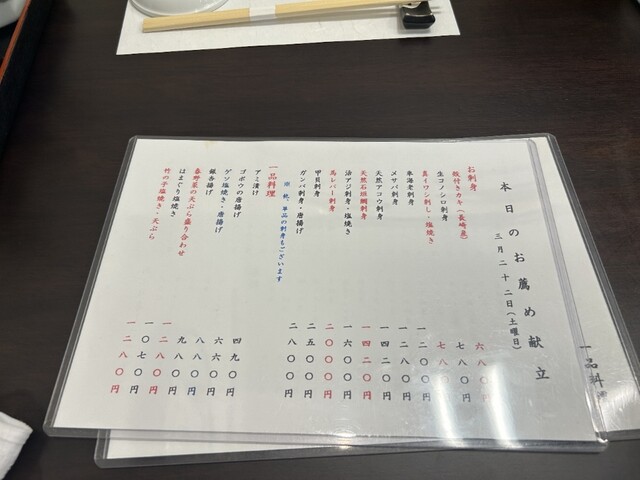 本日のお薦め献立
三月二十二日(土曜日)
お刺身
殻付きカキ(長崎産) 六八〇円
生コノシロ刺身 七八〇円
真イワシ刺し・塩焼き 七八〇円
車海老刺身 一二〇〇円
メサバ刺身 一二八〇円
天然アコウ刺身 一四二〇円
天然石垣鯛刺身 一四二〇円
活アジ刺身・塩焼き 一六〇〇円
馬レバー刺身 二〇〇〇円
甲貝刺身 二五〇〇円
ガンバ刺身・唐揚げ 二八〇〇円
※ 他、単品の刺身もございます
一品料理
アミ漬け 四九〇円
ゴボウの唐揚げ 六六〇円
ゲソ塩焼き・唐揚げ 八八〇円
銀杏揚げ 九八〇円
春野菜の天ぷら盛り合わせ 一二八〇円
はまぐり塩焼き 一〇七〇円
竹の子塩焼き・天ぷら 一二八〇円
一品料